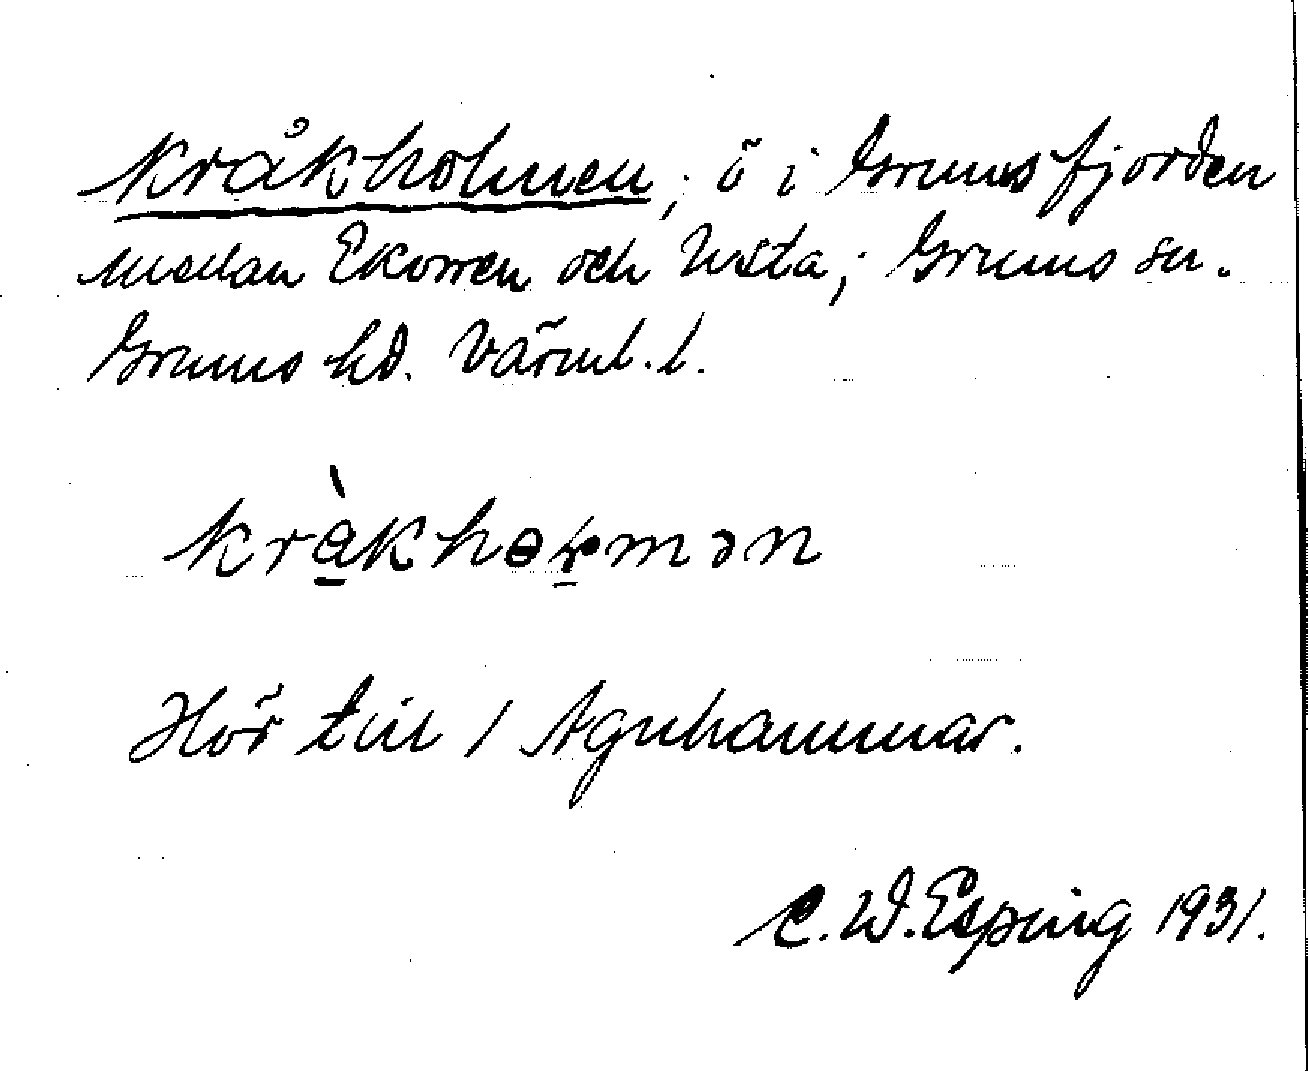 Kråkholmen, ö i Grumsfjorden
mellan Ekorren och Usta; Grums sn.
Grums hd. Värml. l.
Hör till / Agnhammar.
C. W. Esping 1931.